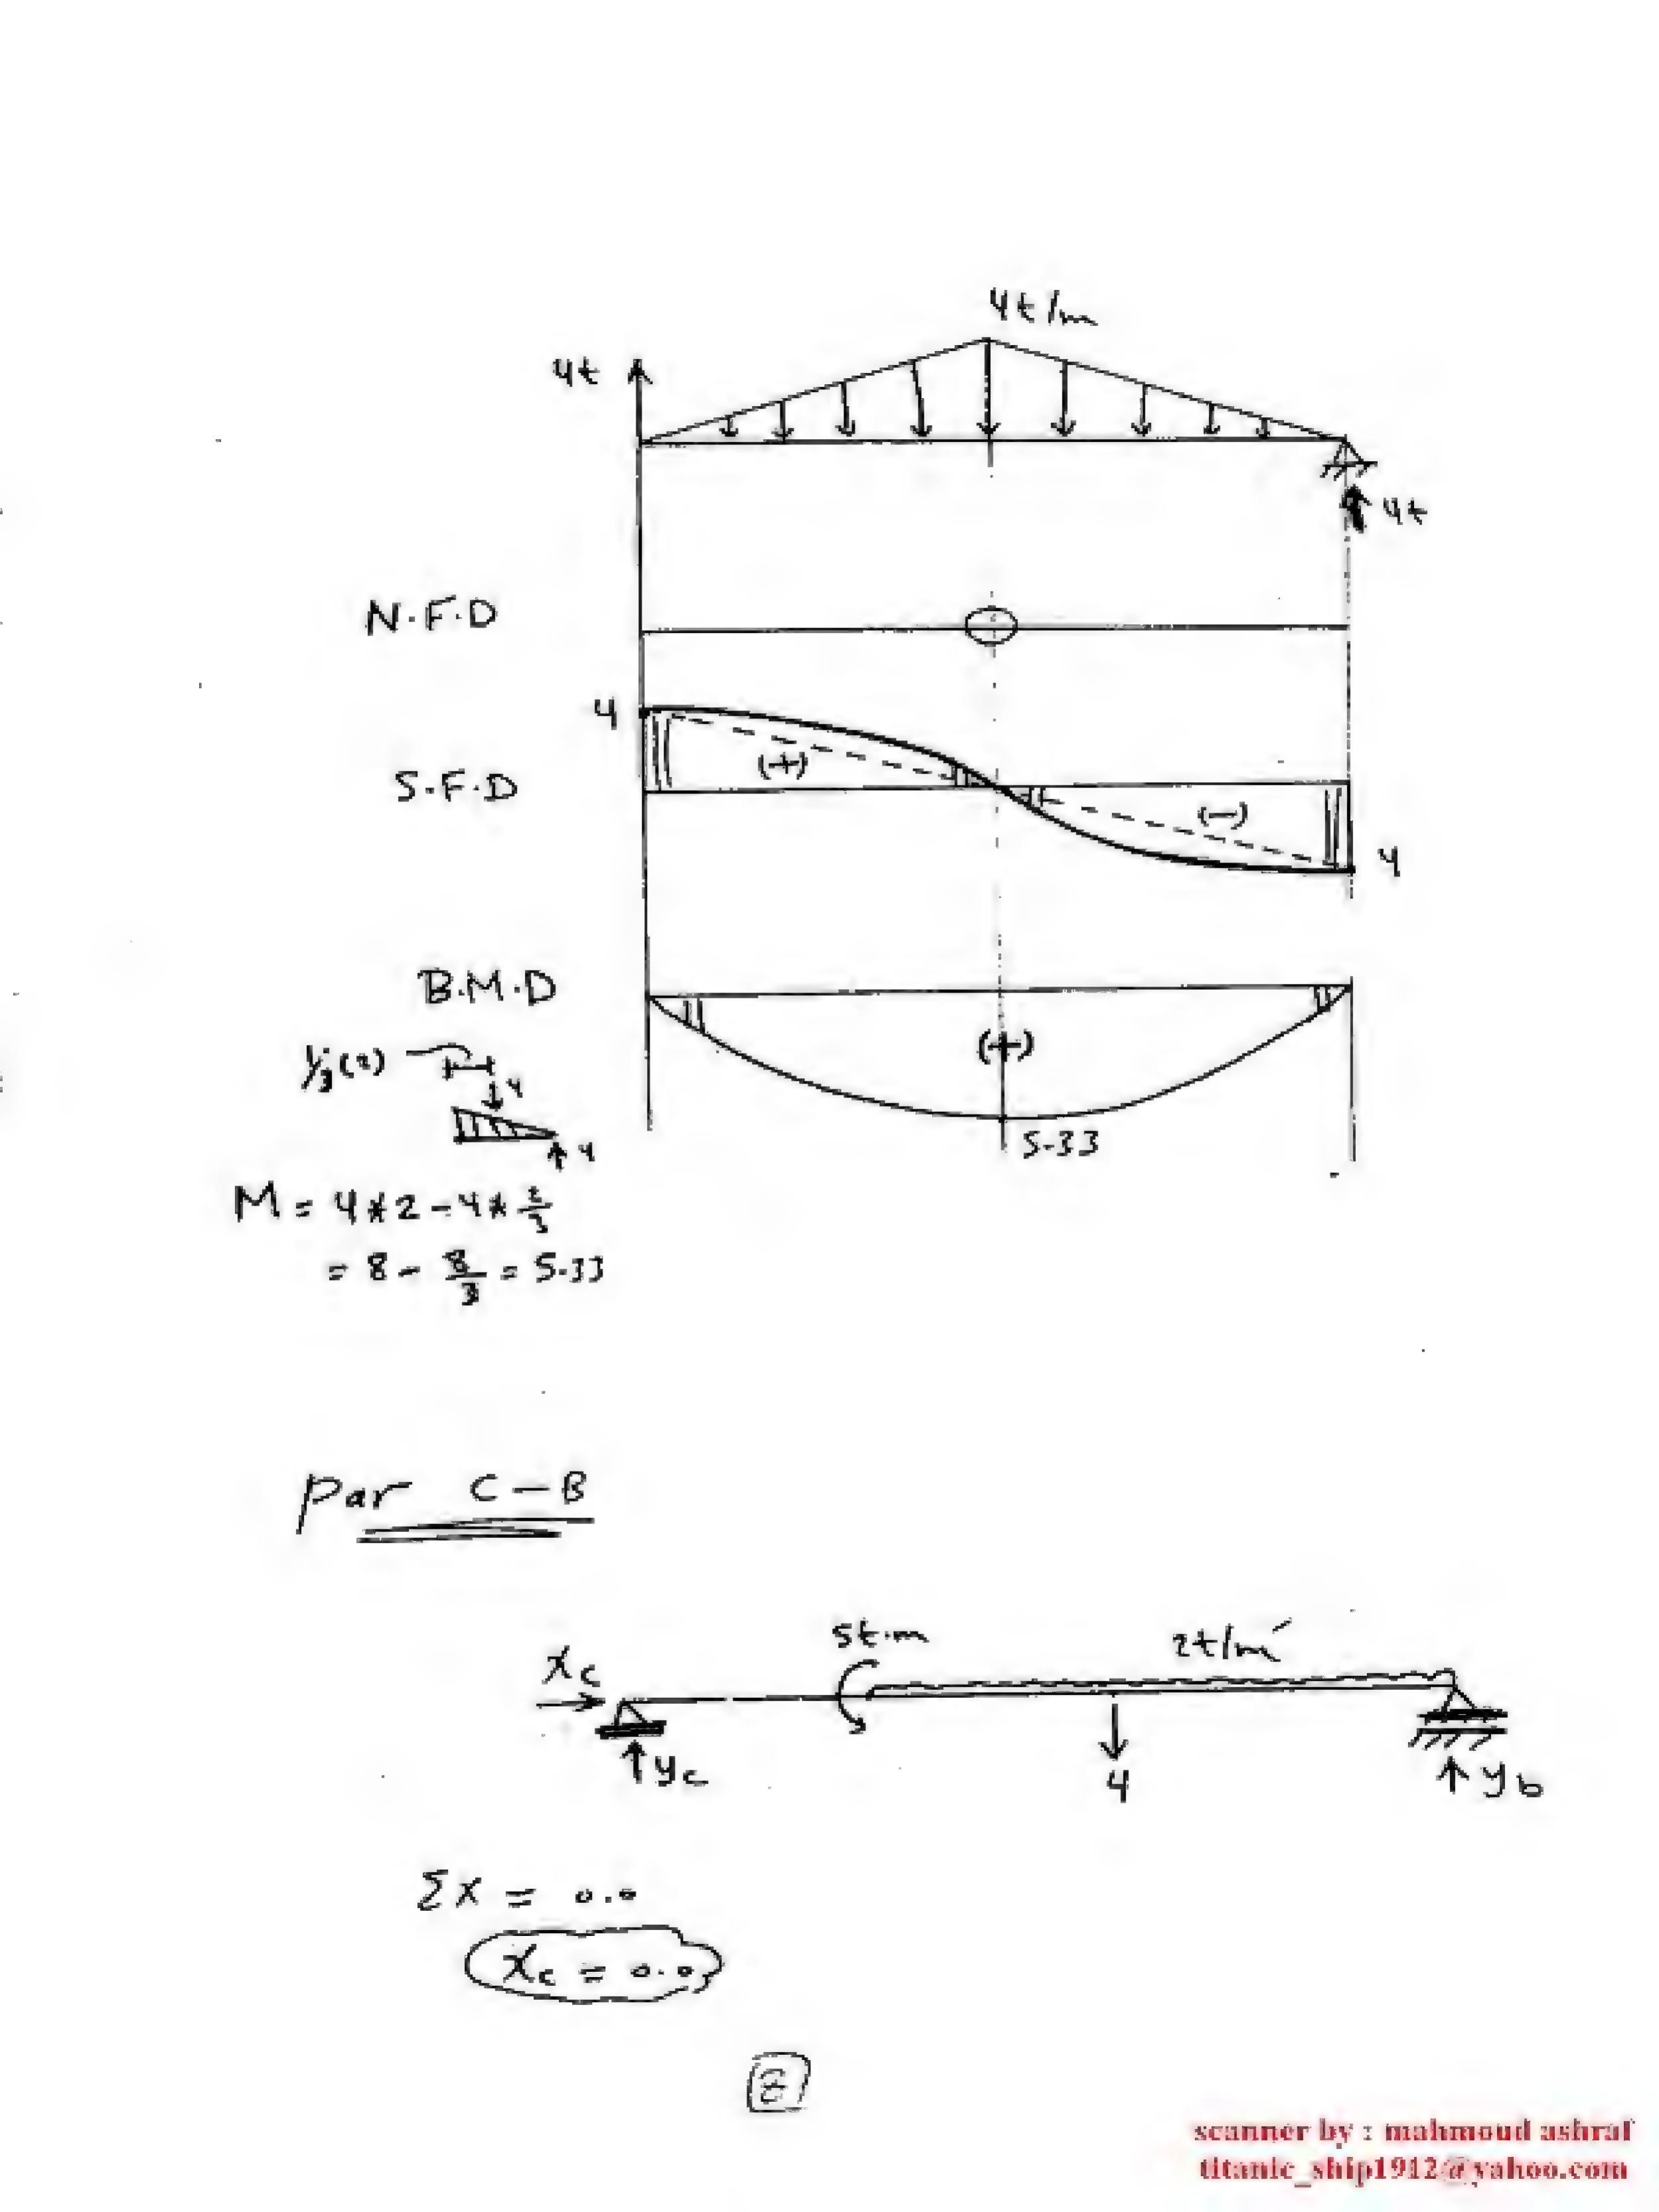 4t/m
4t
4t
N.F.D
4
(+)
S.F.D
(-)
4
B.M.D
(+)
1/3(2)
4
4
5.33
M = 4*2-4*2/3
= 8 - 8/3 = 5.33
Par C-B
5t.m
2t/m'
Xc
yc
4
yb
ΣX = 0.0
Xc = 0.0
8
scanner by : mahmoud ashraf
titanic_ship1912@yahoo.com